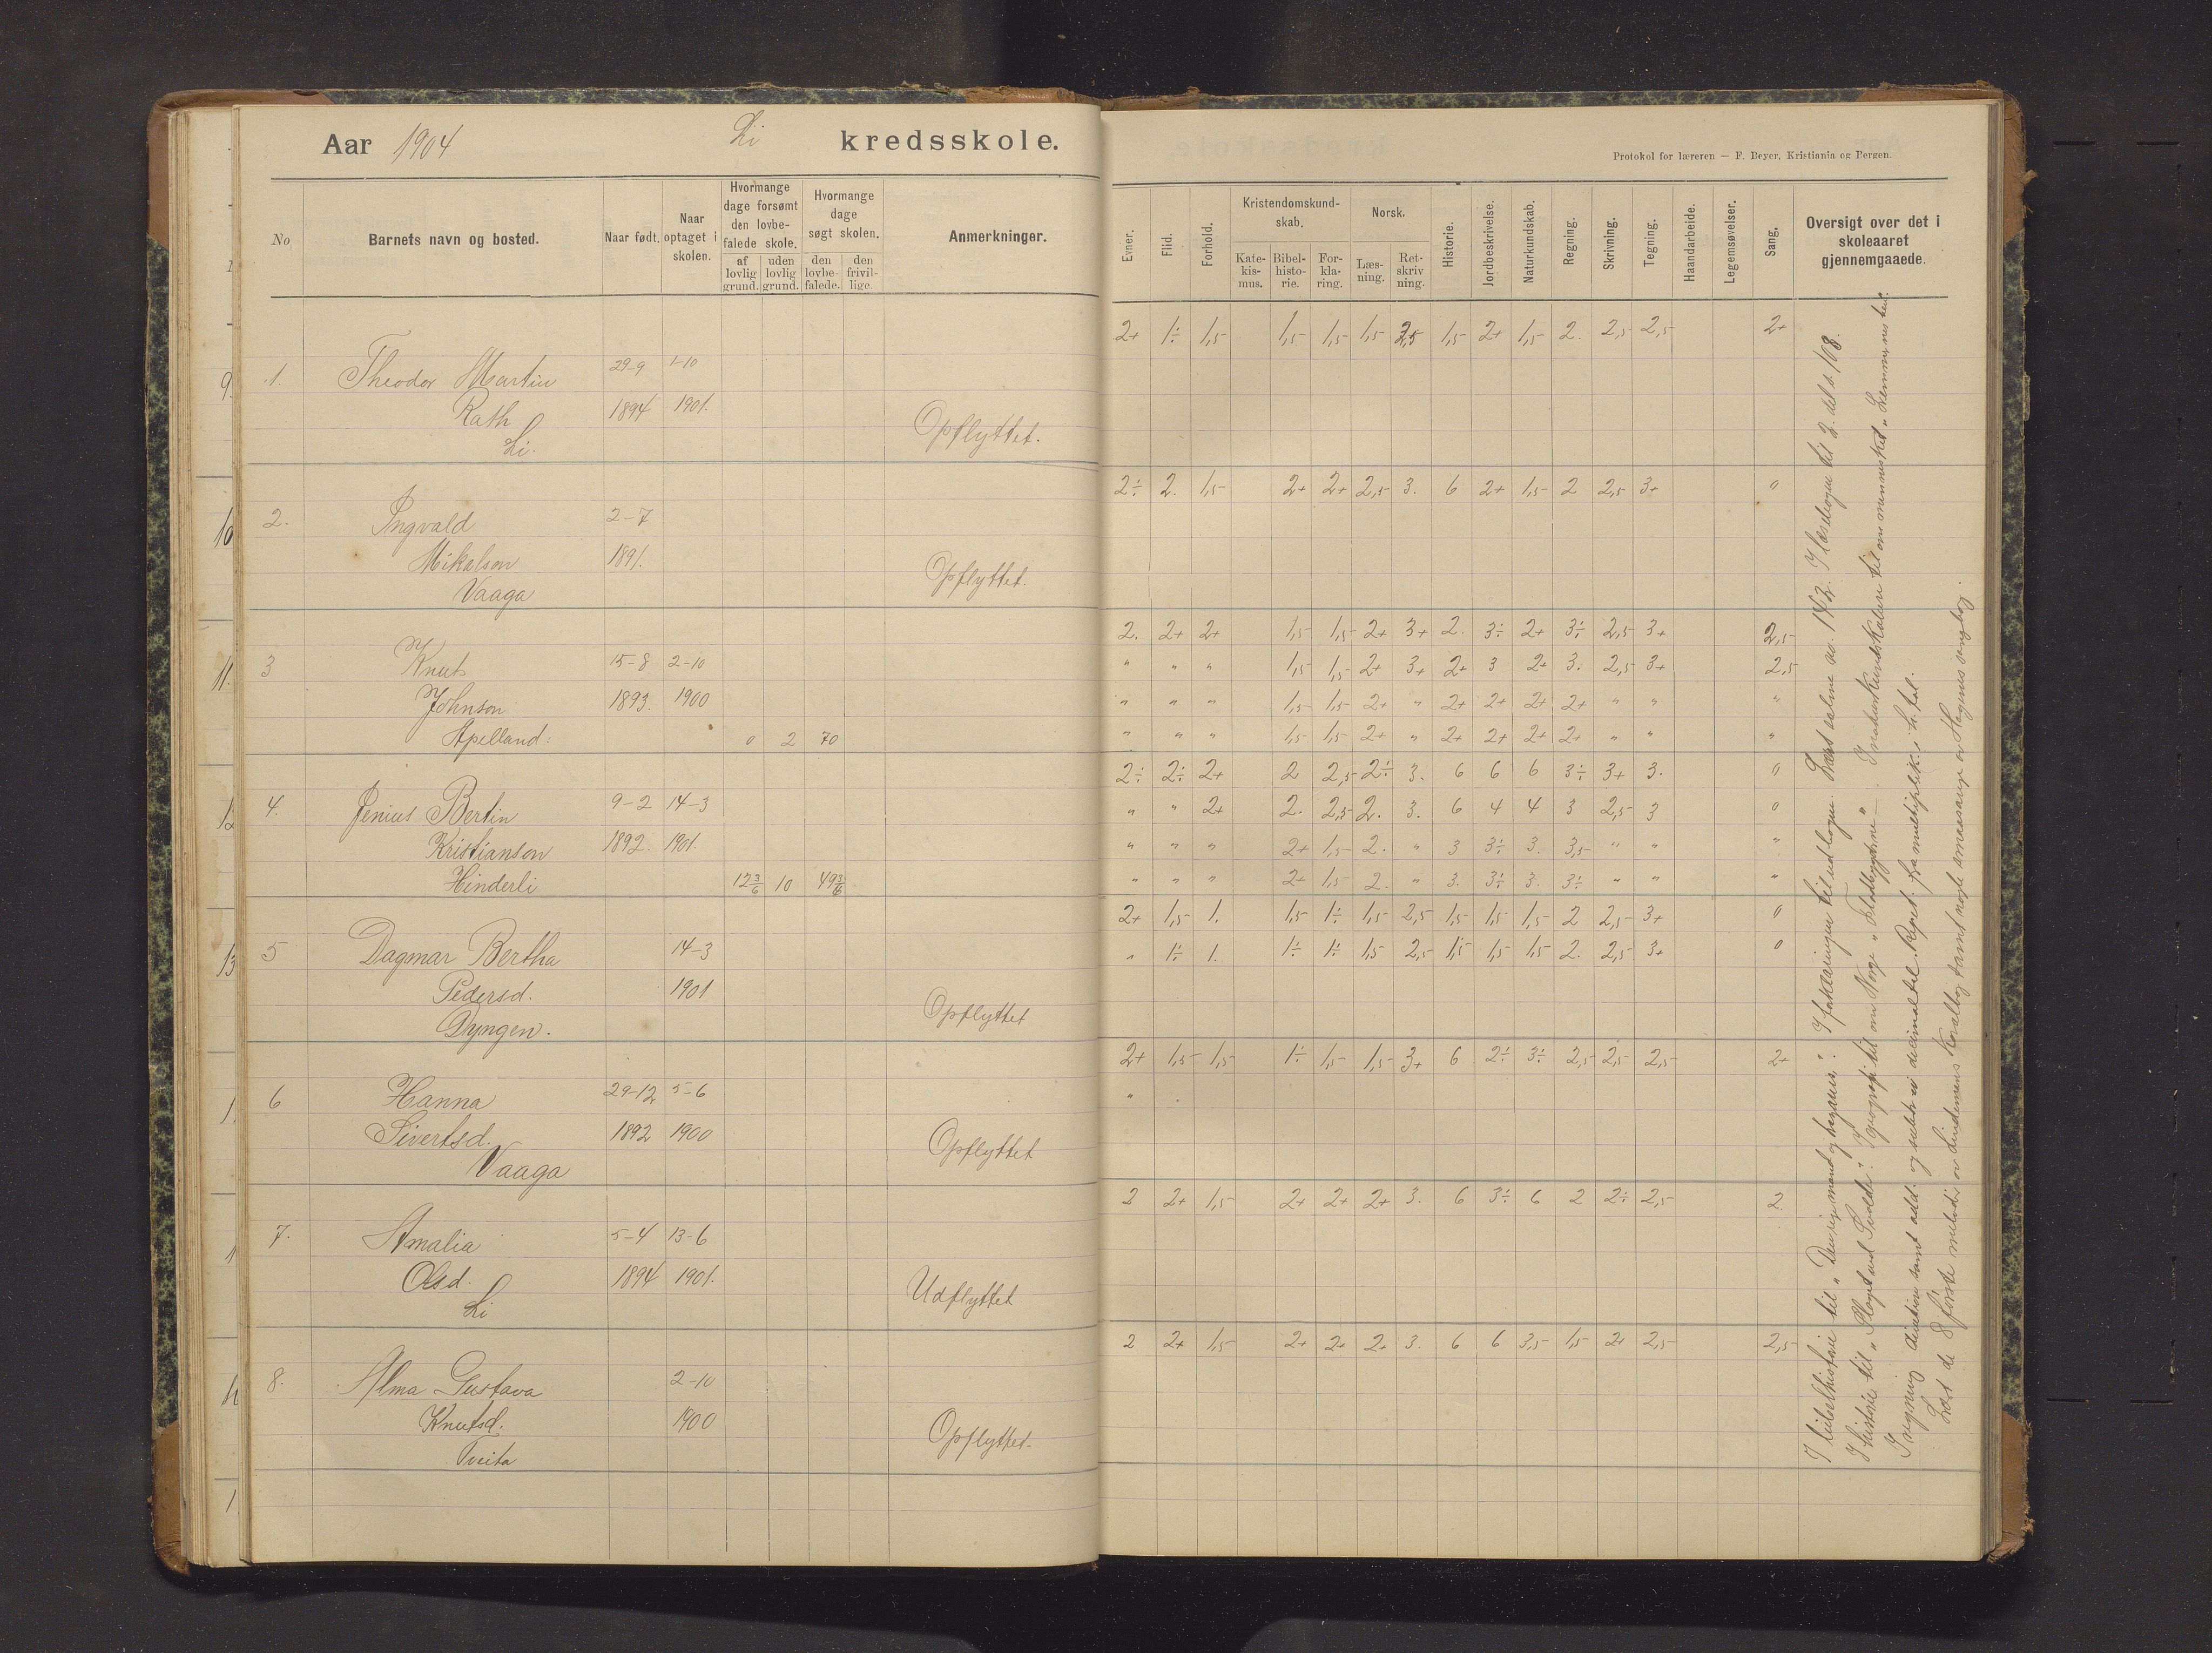 Aar 1904 Li kredsskole.
Protokol for læreren — F. Beyer, Kristiania og Bergen.
No
Barnets navn og bosted.
Naar født.
Naar optaget i skolen.
Hvormange dage forsømt den lovbefalede skole.
af lovlig grund.
uden lovlig grund.
Hvormange dage søgt skolen.
den lovbefalede.
den frivillige.
Anmerkninger.
Evner.
Flid.
Forhold.
Kristendomskundskab.
Katekismus.
Bibelhistorie.
Forklaring.
Norsk.
Læsning.
Retskrivning.
Historie.
Jordbeskrivelse.
Naturkundskab.
Regning.
Skrivning.
Tegning.
Haandarbeide.
Legemsøvelser.
Sang.
Oversigt over det i skoleaaret gjennemgaaede.
2+ 1÷ 1,5 1,5 1,5 1,5 2,5 1,5 2+ 1,5 2. 2,5 2,5 2+
1. Theodor Martin 29-9 1-10
Rath 1894 1901.
Li. Opflyttet.
2÷ 2. 1,5 2+ 2+ 2,5 3. 6 2+ 1,5 2 2,5 3+ 0
2. Ingvald 2-7
Mikalson 1891.
Vaaga Opflyttet.
2. 2+ 2+ 1,5 1,5 2+ 3+ 2. 3÷ 2+ 3÷ 2,5 3+ 2,5
3 Knut 15-8 2-10 " " " 1,5 1,5 2+ 3+ 2+ 3 2+ 3. 2,5 3+ 2,5
Johnson 1893. 1900 " " " 1,5 1,5 2+ " 2+ 2+ 2+ 2+ " " "
Apelland: 0 2 70 " " " 1,5 1,5 2+ " 2+ 2+ 2+ 2+ " " "
2÷ 2÷ 2+ 2 2,5 2÷ 3. 6 6 6 3÷ 3+ 3. 0
4. Jenius Bertin 9-2 14-3 " " 2+ 2. 2,5 2. 3. 6 4 4 3 2,5 3 0
Kristianson 1892. 1901. " " " 2+ 1,5 2. " 3 3÷ 3. 3,5 " " "
Hinderli 12 3/6 10 49 3/6 " " " 2+ 1,5 2. " 3. 3÷ 3. 3÷ " " "
2+ 1,5 1. 1,5 1÷ 1,5 2,5 1,5 1,5 1,5 2 2,5 3+ 0
5 Dagmar Bertha 14-3 " 1÷ 1. 1÷ 1÷ 1,5 2,5 1,5 1,5 1,5 2. 2,5 3+ 0
Pedersd. 1901
Dyngen. Opflyttet
2+ 1,5 1,5 1÷ 1,5 1,5 3+ 6 2÷ 3÷ 2,5 2,5 2,5 2+
6 Hanna 29-12 5-6 "
Sivertsd. 1892 1900
Vaaga Opflyttet
2 2+ 1,5 2+ 2+ 2+ 3. 6 3÷ 6 2 2÷ 2,5 2
7. Amalia 5-4 13-6
Olsd. 1894 1901.
Li Udflyttet
2 2+ 1,5 2+ 2+ 2+ 3. 6 6 3,5 1,5 2+ 2,5 2,5
8. Alma Gustava 2-10
Knutsd. 1900
Tveita Opflyttet.
I bibelhistorie til "Den rige mand og Lazarus." I forklaringen til Lært salme no. 142. I læsebogen til 2. del s. 108.
I historie til "Slaget ved Svolder". I geografi til om Norge "Fladbygderne". I naturkundskaben til om mennesket "Lemmernes ben".
I regning division samt add. og subtr. i decimaltal. Øvet framultiplik. i h. tal.
Lært de 8 første melodier av Lindemans Koralbog samt nogle smaasange av Hognes sangbog.
9.
10
11.
12
13